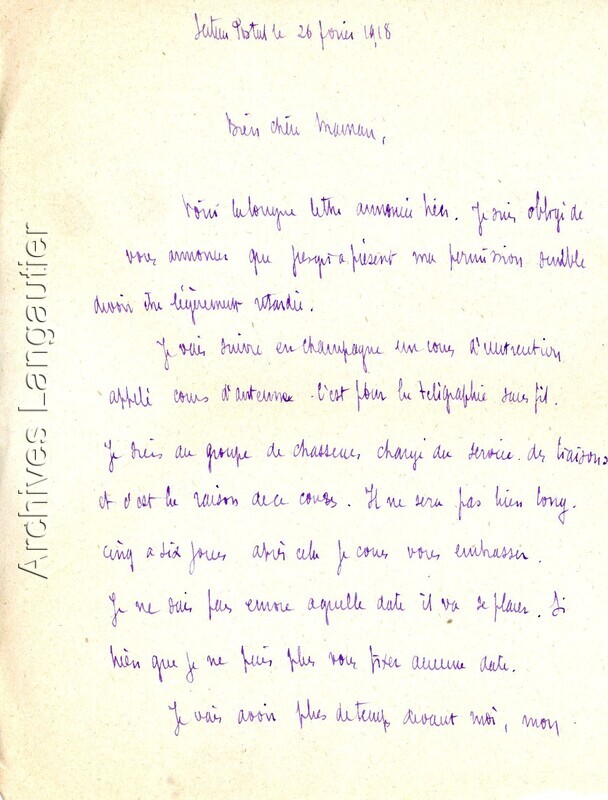 Secteur Postal le 26 février 1918
Bien chère Maman,
Voici la longue lettre annoncée hier. Je suis obligé de
vous annoncer que jusqu'a présent ma permission semble
devoir être légèrement retardée.
Je vais suivre en champagne un cours d'entretien
appelé cours d'antenne. C'est pour la télégraphie sans fil.
Je suis au groupe de chasseurs chargé du service des liaisons
et c'est la raison de ce cours. Il ne sera pas bien long.
cinq a six jours après cela je cours vous embrasser.
Je ne sais pas encore a quelle date il va se placer. Si
bien que je ne puis plus vous fixer aucune date.
Je vais avoir plus de temps devant moi, mon
Archives Langautier